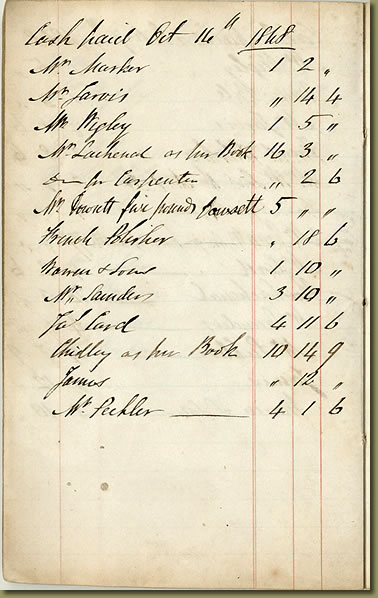 Cash paid Oct 14th 1848
Mr Marker 1 2 "
Mr Jarvis " 14 4
Mr Wigley 1 5 "
Mr Lachenal as per Book 16 3 "
Do for Carpenter " 2 6
Mr Dowsett five pounds Dowsett 5 " "
French Polisher " 18 6
Warren & Sons 1 10 "
Mr Saunders 3 10 "
Jas Card 4 11 6
Chidley as per Book 10 14 9
James " 12 "
Mr Peckler 4 1 6